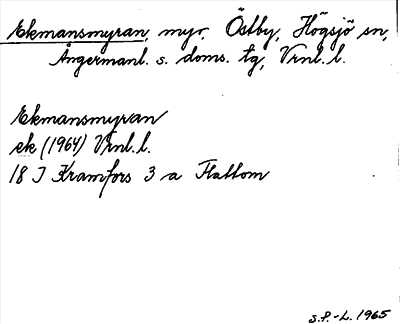 Ekmansmyran, myr, Östby, Högsjö sn,
Ångermanl. s. doms. tg, Vrnl. l.
Ekmansmyran
ek (1964) Vrnl. l.
18 I Kramfors 3 a Flattom
S.P.-L. 1965